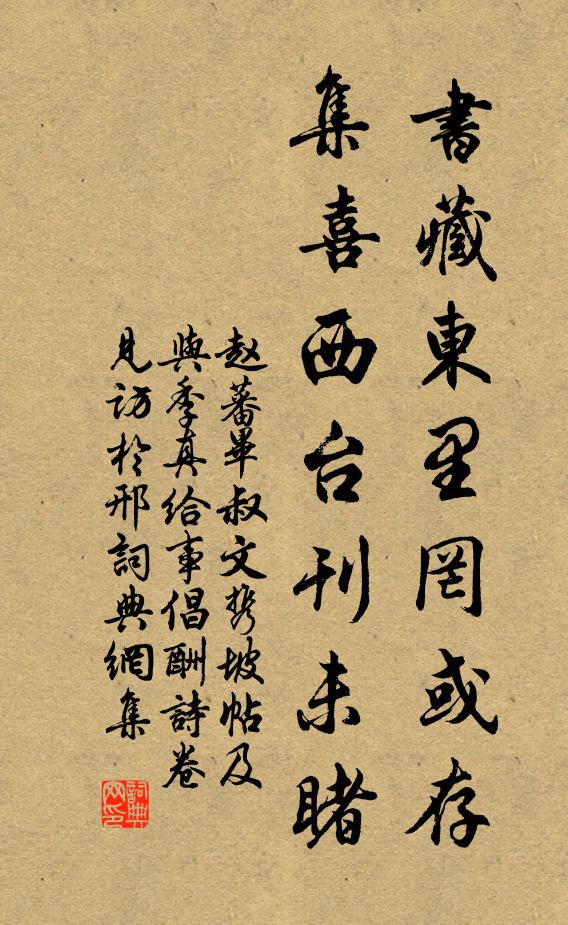 書藏東里罔或存
集喜西台刊未睹
赵蕃畢叔文携坡帖及
與季真給事倡酬詩卷
見訪於邢詞典網集
詞典网印